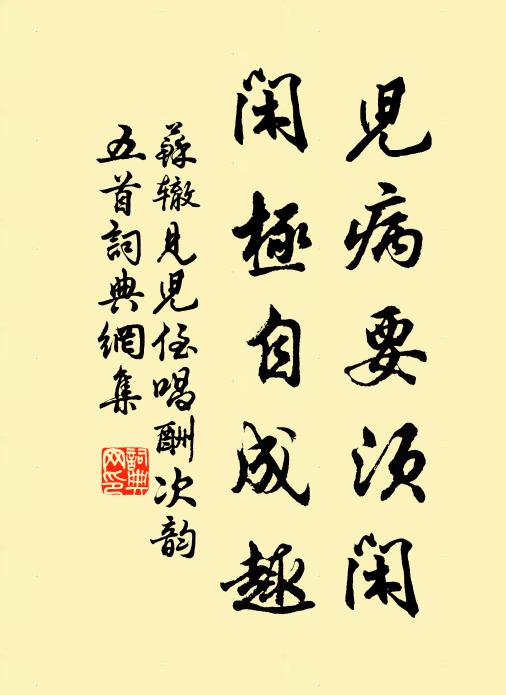 児病要須閑
閑極自成趣
蘇辙見児侄唱酬次韵
五首詞典網集
詞典网印